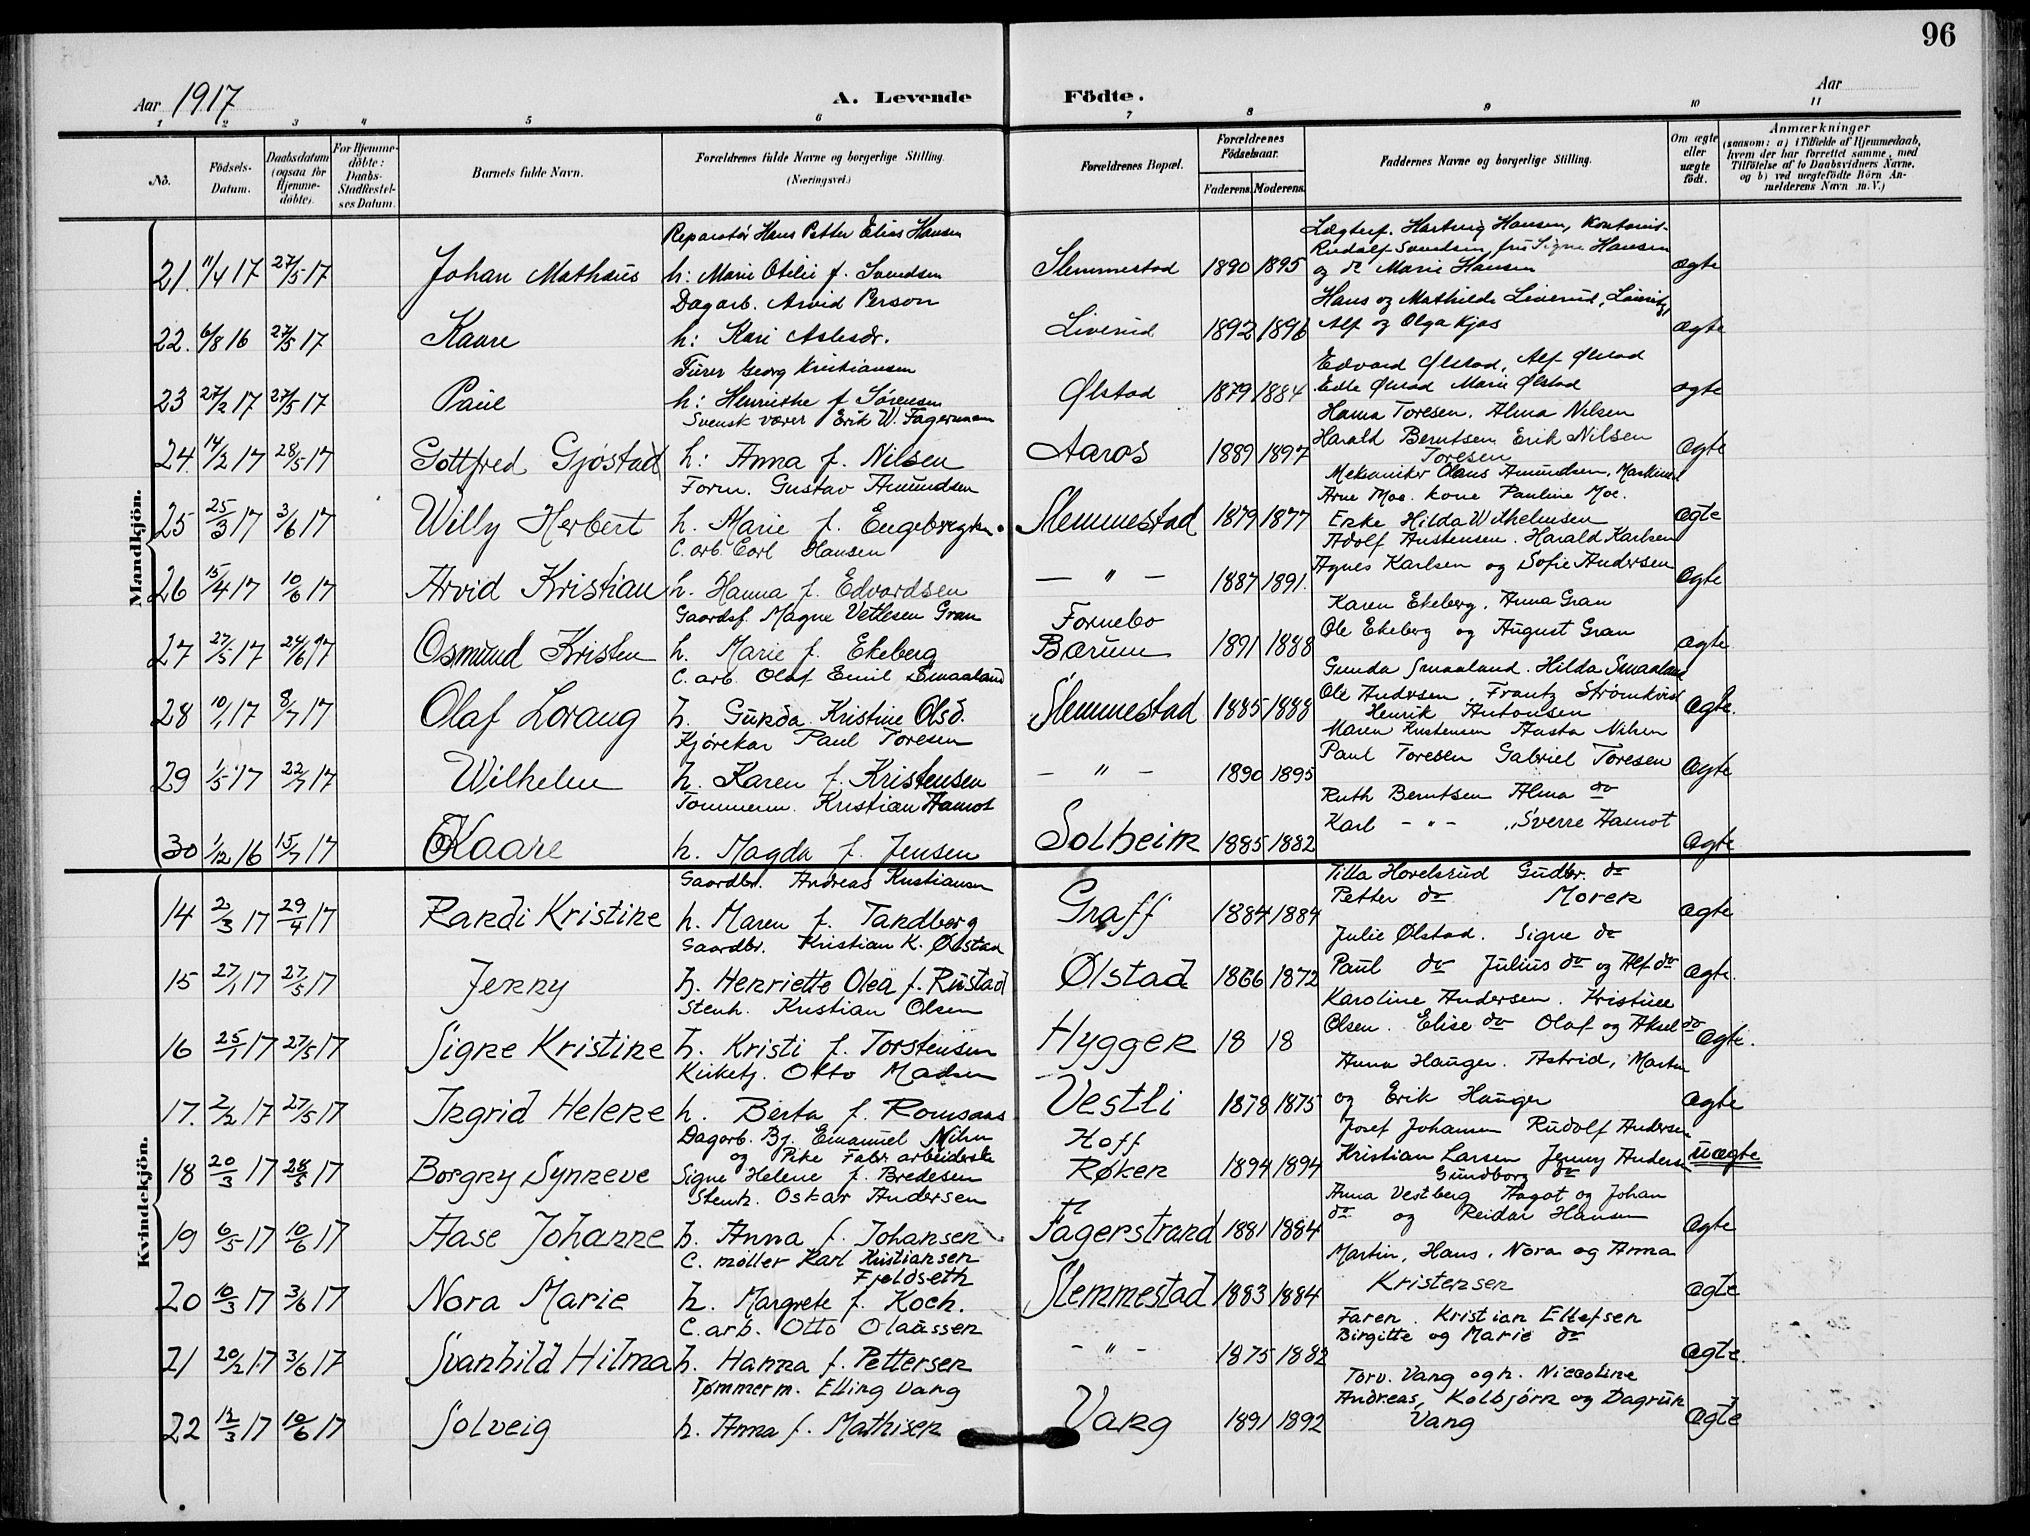 96
Aar 1917
A. Levende Födte.
Aar
1 2 3 4 5 6 7 8 9 10 11
No.
Födsels-Datum.
Daabsdatum (ogsaa for Hjemme-döbte).
For Hjemme-döbte: Daabs-Stadfæstel-ses Datum.
Barnets fulde Navn.
Forældrenes fulde Navne og borgerlige Stilling. (Næringsvei.)
Forældrenes Bopæl.
Forældrenes Födselsaar.
Faderens. Moderens.
Faddernes Navne og borgerlige Stilling.
Om ægte eller uægte födt.
Anmærkninger (saasom: a) i Tilfælde af Hjemmedaab, hvem der har forrettet samme, med Tilföielse af to Daabsvidners Navne, og b) ved uægtefödte Börn An-melderens Navn m.V.)
Mandkjön.
Reparatör Hans Petter Elias Hansen
21. 11/4 17 27/5 17 Johan Mathäus h: Marie Otilie f. Svendsen Slemmestad 1890 1895 og d: Marie Hansen ægte
Rudolf Svendsen, fru Signe Hansen
Dagarb. Arvid Person
Hans og Mathilde Liverud,
22. 6/8 16 27/5 17 Kaare h: Kari Aslesdr. Liverud 1892 1896 Alf og Olga Kjos ægte
Georg Kristiansen
Edvard Ølstad, Alf Ølstad
23 27/2 17 27/5 17 Paul h: Henriette f. Sörensen Ølstad 1879 1884 Ølstad Marie Ølstad ægte
Svensk Erik W. Fagerman
Hanna Toresen, Alma Nilsen
24. 14/2 17 28/5 17 Gottfred Gjöstad h: Anna f. Nilsen Aaros 1889 1897 Harald Berntsen Erik Nilsen ægte
Toresen
Form. Gustav Amundsen
Mekaniker Olaus Amundsen,
Arne Moe. kone Pauline Moe.
25 25/3 17 3/6 17 Willy Herbert h. Marie f. Slemmestad 1879 1877 Enke Hilda Wilhelmsen ægte
C. arb. Carl Hansen
Adolf Austensen. Harald Karlsen
26 15/4 17 10/6 17 Arvid Kristian h. Hanna f. Edvardsen — " — 1887 1891. Agnes Karlsen og Sofie Andersen ægte
Gaardsf. Magne Vetlesen Gran
Fornebo
Karen Ekeberg. Anna Gran
27 27/5 17 24/6 17 Osmund Kristen h. Marie f. Ekeberg Bærum 1891 1888 Ole Ekeberg og August Gran ægte
C. arb. Olaf Emil Smaaland
Gunda Smaaland. Hilda Smaaland
28 10/1 17 8/7 17 Olaf Lorang h. Gunda Kristine Olsd. Slemmestad 1885 1888 Ole Andersen, Frantz Strömkvist ægte.
Henrik Antonsen
Kjörekar Paul Toresen
Maren Kristensen Nilsen
29 1/5 17 22/7 17 Wilhelm h. Karen f. Kristensen — " — 1890 1895 Paul Toresen Gabriel Toresen ægte
Tømmerm. Kristian Aamot
Ruth Berntsen Alma do
30 1/12 16 15/7 17 Kaare h. Magda f. Jensen Solheim 1885 1882 Karl — " — Sverre Aamot ægte
Kvindekjön.
Gaardbr. Andreas Kristiansen
Tilla Hovelsrud Gudbr. do
14 2/3 17 29/4 17 Randi Kristine h. Maren f. Tandberg Graff 1884 1884 Petter do Moren ægte
Gaardbr. Kristian K. Ølstad
Julie Ølstad. Signe do
15 27/1 17 27/5 17 Jenny h. Henriette Olea f. Rustad Ølstad 1866 1872 Paul do Julius do og Alf do ægte.
Stenh. Kristian Olsen
Karoline Andersen. Kristine
16 25/1 17 27/5 17 Signe Kristine h. Kristi f. Torstensen Hyggen 18 18 Olsen. Elise do Olaf og Aksel do ægte.
Kirketj. Otto Madsen
Anna Hauger. Astrid, Martin
17. 2/2 17 27/5 17 Ingrid Helene h. Berta f. Romsaas Vestli 1878 1875 og Erik Hauger ægte
Dagarb. Bj. Emanuel Nilsen
Hoff
Josef Johansen Rudolf Andersen
og Pike Fabr. arbeiderske
18 20/3 17 28/5 17 Borgny Synneve Signe Helene f. Bredesen Røken 1894 1894 Kristian Larsen Jenny Andersen uægte
Gundborg do
Stenh. Oskar Andersen
Anna Vestberg Aagot og Johan
19 6/5 17 10/6 17 Aase Johanne h. Anna f. Johansen Fagerstrand 1881 1884 do og Reidar Hansen ægte
C. møller Karl Kristiansen
Fjeldseth
Martin, Hans, Nora og Anna
20 10/3 17 3/6 17 Nora Marie h. Margrete f. Koch. Slemmestad 1883 1884 Kristensen ægte
C. arb. Otto Olaussen
Faren. Kristian Ellefsen
21 20/2 17 3/6 17 Svanhild Hilma h. Hanna f. Pettersen — " — 1875 1882 Birgitte og Marie do ægte.
Tømmerm. Elling Vang
Torv. Vang og h. Nicoline
22 12/3 17 10/6 17 Solveig h. Anna f. Mathisen Vang 1891 1892 Andreas, Kolbjørn og Dagrun Vang ægte